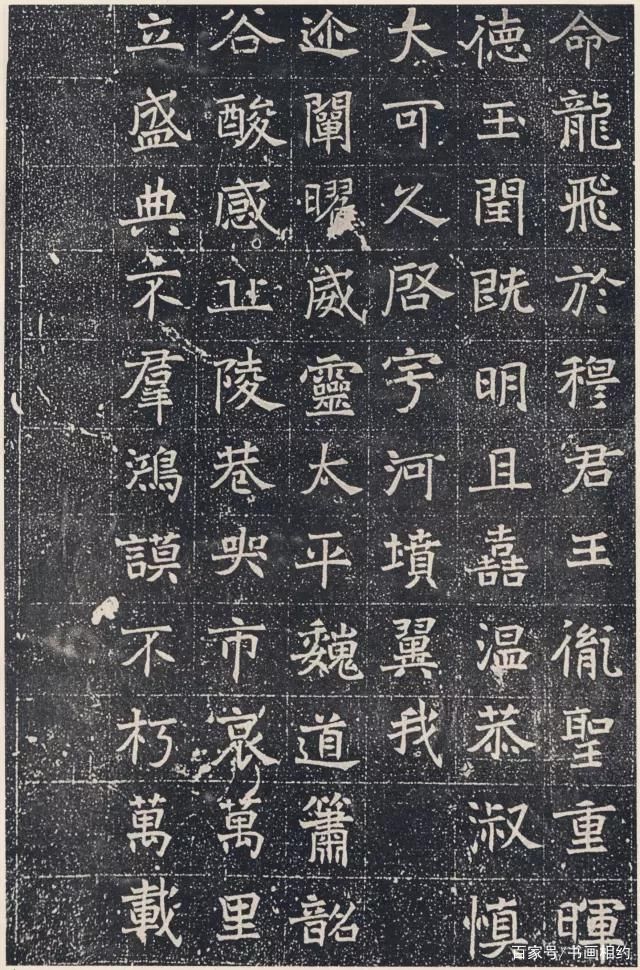 命龍飛於穆君王胤聖重暉
德玉閏既明且嚞温恭淑慎
大可久啓宇河墳翼我
迩闡曜威靈太平魏道簫韶
谷酸感丘陵巷哭市哀萬里
立盛典不羣鴻謨不朽萬載
百家号/书画相约